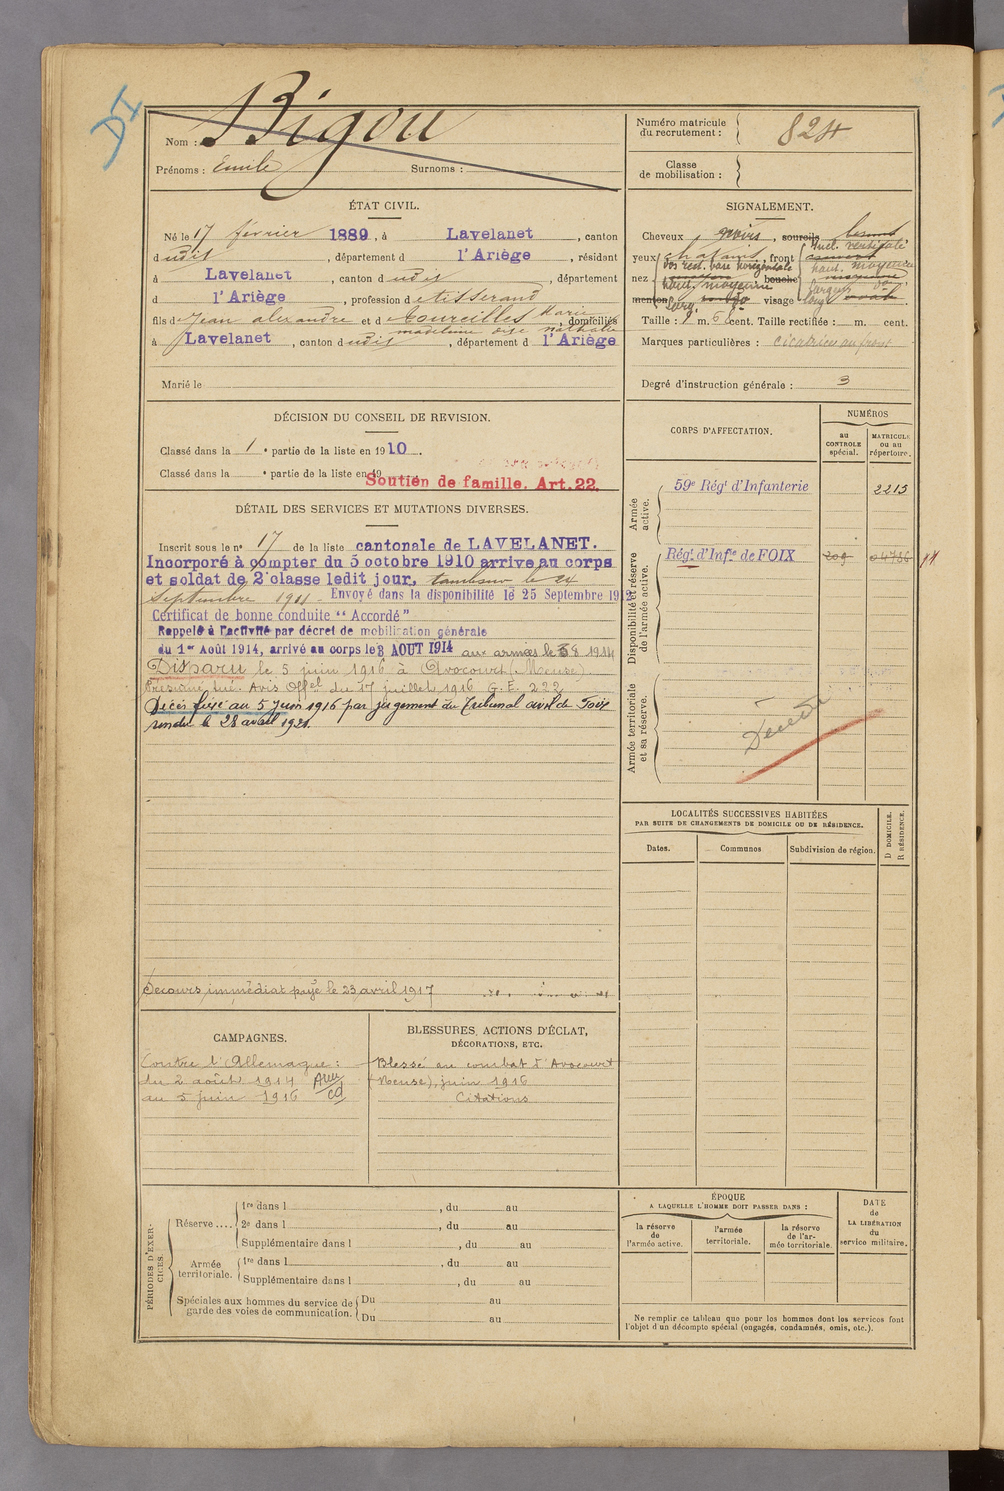 DI
Nom : Bigou
Prénoms : Emile Surnoms :
Numéro matricule du recrutement : 824
Classe de mobilisation :
ÉTAT CIVIL.
Né le 17 février 1889, à Lavelanet, canton
dudit, département d l'Ariège, résidant
à Lavelanet, canton dudit, département
d l'Ariège, profession de tisserand
fils de Jean alexandre et de Toureilles Marie
madeleine nathalie, domiciliés
à Lavelanet, canton dudit, département d l'Ariège
Marié le
SIGNALEMENT.
Cheveux noirs, sourcils
yeux chatains, front incl. verticale
dos rect. base horizontale haut. moyenne
nez bouche largeur do
haut. moyenne
menton visage long
Taille : 1 m. 6 cent. Taille rectifiée : m. cent.
Marques particulières : cicatrice au front
Degré d'instruction générale : 3
DÉCISION DU CONSEIL DE REVISION.
Classé dans la 1e partie de la liste en 1910.
Classé dans la e partie de la liste en 19
Soutien de famille. Art. 22.
DÉTAIL DES SERVICES ET MUTATIONS DIVERSES.
Inscrit sous le n° 17 de la liste cantonale de LAVELANET.
Incorporé à compter du 5 octobre 1910 arrive au corps
et soldat de 2e classe ledit jour, tambour le 24
Septembre 1911 - Envoyé dans la disponibilité le 25 Septembre 1912
Certificat de bonne conduite "Accordé"
Rappelé à l'activité par décret de mobilisation générale
du 1er Août 1914, arrivé au corps le 3 AOUT 1914 aux armées le 8 1914
Disparu le 5 juin 1916 à Avocourt (Meuse)
Présumé tué. Avis Offel du 17 juillet 1916 G.E. 222
Décès fixé au 5 juin 1916 par jugement du Tribunal civil de Foix
rendu le 28 avril 1921.
Secours immédiat payé le 23 avril 1917
CORPS D'AFFECTATION.
NUMÉROS
au CONTROLE spécial.
MATRICULE ou au répertoire.
Armée active.
59e Régt d'Infanterie 2213
Disponibilité et réserve de l'armée active.
Régt d'Infie de FOIX 209 04786
Armée territoriale et sa réserve.
Décédé
LOCALITÉS SUCCESSIVES HABITÉES
PAR SUITE DE CHANGEMENTS DE DOMICILE OU DE RÉSIDENCE.
D DOMICILE.
R RÉSIDENCE.
Dates. Communes Subdivision de région.
CAMPAGNES.
Contre l'Allemagne :
du 2 août 1914
au 5 juin 1916
BLESSURES, ACTIONS D'ÉCLAT,
DÉCORATIONS, ETC.
Blessé au combat d'Avocourt
(Meuse), juin 1916
Citations
PÉRIODES D'EXERCICES.
Réserve....
1re dans l , du au
2e dans l , du au
Supplémentaire dans l , du au
Armée territoriale.
1re dans l , du au
Supplémentaire dans l , du au
Spéciales aux hommes du service de garde des voies de communication.
Du au
Du au
ÉPOQUE
A LAQUELLE L'HOMME DOIT PASSER DANS :
la réserve de l'armée active.
l'armée territoriale.
la réserve de l'armée territoriale.
DATE de LA LIBÉRATION du service militaire.
Ne remplir ce tableau que pour les hommes dont les services font
l'objet d'un décompte spécial (engagés, condamnés, omis, etc.).